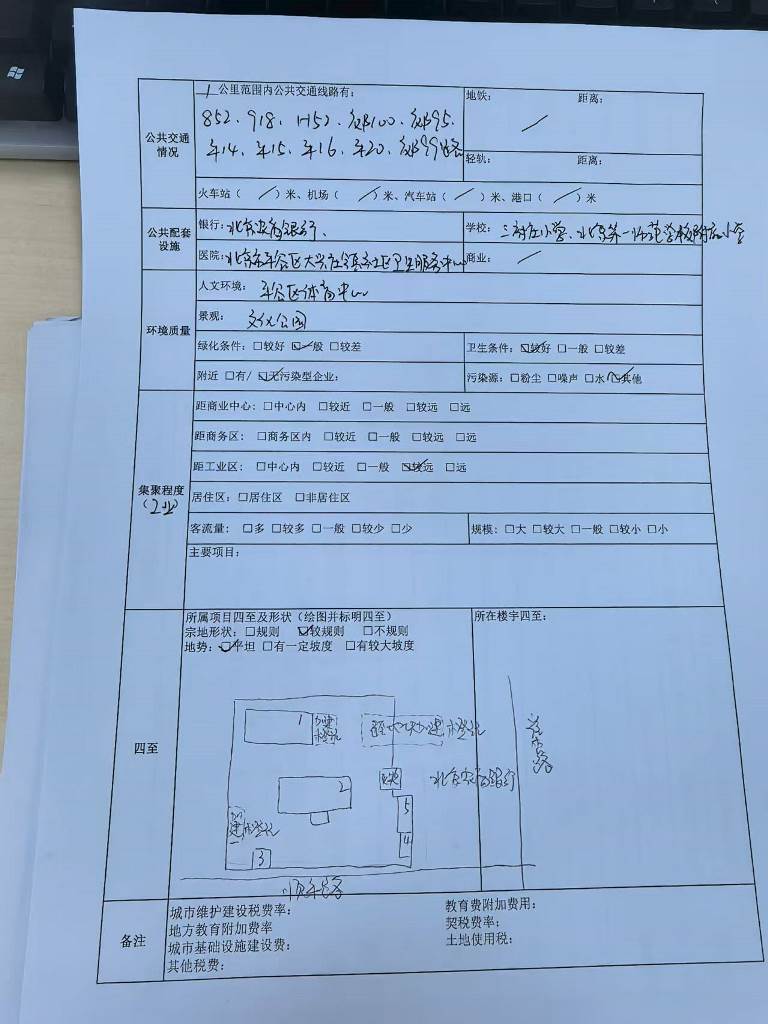 1公里范围内公共交通线路有：
852、918、H52、郊B100、郊B95、
平14、平15、平16、平20、郊B99路
地铁： 距离：
/
轻轨： 距离：
公共交通
情况
火车站（ / ）米、机场（ / ）米、汽车站（ / ）米、港口（ / ）米
公共配套
设施
银行：北京农商银行、
学校：三村庄小学、北京第一师范学校附属小学
医院：北京市平谷区大兴庄镇社区卫生服务中心
商业： /
环境质量
人文环境： 平谷区体育中心
景观： 文化公园
绿化条件：□较好 ☑一般 □较差
卫生条件：☑较好 □一般 □较差
附近 □有/☑无污染型企业：
污染源：□粉尘 □噪声 □水 ☑其他
集聚程度
（工业）
距商业中心：□中心内 □较近 □一般 □较远 □远
距商务区：□商务区内 □较近 □一般 □较远 □远
距工业区：□中心内 □较近 □一般 ☑较远 □远
居住区：□居住区 □非居住区
客流量：□多 □较多 □一般 □较少 □少
规模：□大 □较大 □一般 □较小 □小
主要项目：
四至
所属项目四至及形状（绘图并标明四至）
宗地形状：□规则 ☑较规则 □不规则
地势：☑平坦 □有一定坡度 □有较大坡度
所在楼宇四至：
1
未登记
未登记
2
北京农商银行
5
4
未登记
3
顺平路
备注
城市维护建设税费率：
地方教育附加费率
城市基础设施建设费：
其他税费：
教育费附加费用：
契税费率：
土地使用税：